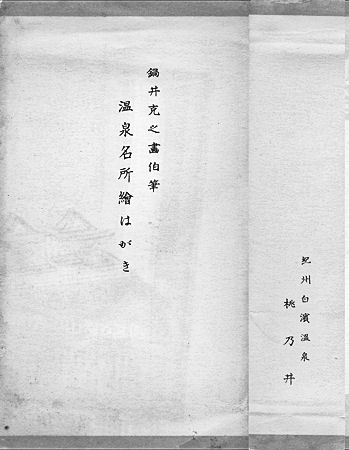 紀州白濱温泉
桃乃井
鍋井克之畫伯筆
温泉名所繪はがき